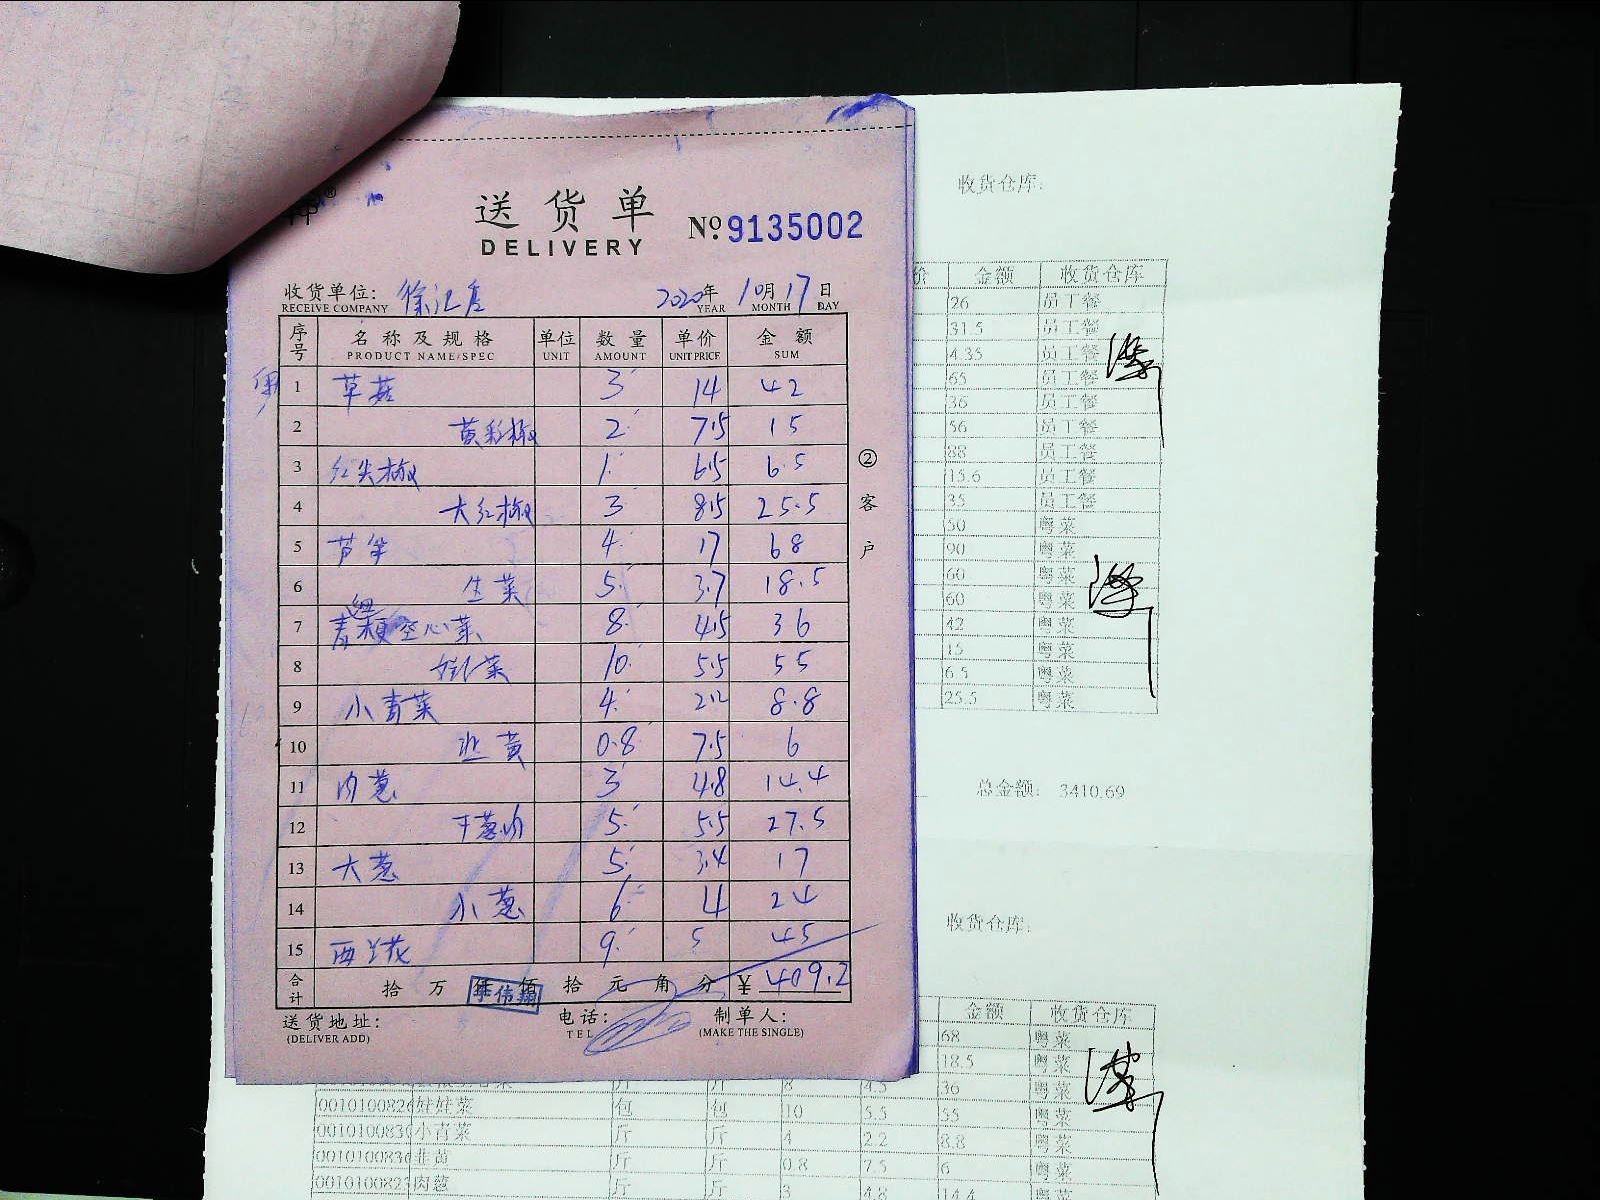 送货单
DELIVERY
No. 9135002
收货单位: 徐汇店 2020年 10月 17日
RECEIVE COMPANY YEAR MONTH DAY
序号 名称及规格 单位 数量 单价 金额
PRODUCT NAME/SPEC UNIT AMOUNT UNIT PRICE SUM
1 草菇 3 14 42
2 黄彩椒 2 7.5 15
3 红尖椒 1 6.5 6.5
4 大红椒 3 8.5 25.5
5 芦笋 4 17 68
6 生菜 5 3.7 18.5
7 青梗空心菜 8 4.5 36
8 娃娃菜 10 5.5 55
9 小青菜 4 2.2 8.8
10 韭黄 0.8 7.5 6
11 肉葱 3 4.8 14.4
12 干葱肉 5 5.5 27.5
13 大葱 5 3.4 17
14 小葱 6 4 24
15 西兰花 9 5 45
合计 拾 万 仟 佰 拾 元 角 分 ¥ 409.2
送货地址: 电话: 制单人:
(DELIVER ADD) TEL (MAKE THE SINGLE)
②客户
收货仓库:
价 金额 收货仓库
26 员工餐
31.5 员工餐
4.35 员工餐
65 员工餐
36 员工餐
56 员工餐
88 员工餐
15.6 员工餐
35 员工餐
50 粤菜
90 粤菜
60 粤菜
60 粤菜
42 粤菜
15 粤菜
6.5 粤菜
25.5 粤菜
总金额: 3410.69
收货仓库:
金额 收货仓库
68 粤菜
18.5 粤菜
斤 斤 8 4.5 36 粤菜
0010100826 娃娃菜 包 包 10 5.5 55 粤菜
001010083 小青菜 斤 斤 4 2.2 8.8 粤菜
001010083 韭黄 斤 斤 0.8 7.5 6 粤菜
001010082 肉葱 斤 斤 3 4.8 14.4 粤菜